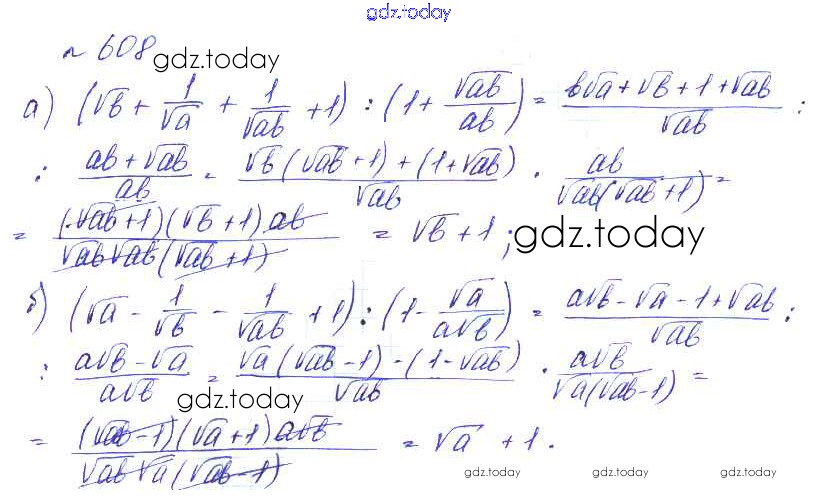 gdz.today
№ 608 gdz.today
а) (√b + 1/√a + 1/√ab + 1) : (1 + √ab/ab) = (b√a + √b + 1 + √ab)/√ab :
: (ab + √ab)/ab = (√b(√ab + 1) + (1 + √ab))/√ab · ab/(√ab(√ab + 1)) =
= ((√ab + 1)(√b + 1)ab)/(√ab√ab(√ab + 1)) = √b + 1; gdz.today
б) (√a - 1/√b - 1/√ab + 1) : (1 - √a/(a√b)) = (a√b - √a - 1 + √ab)/√ab :
: (a√b - √a)/(a√b) = (√a(√ab - 1) - (1 - √ab))/√ab · a√b/(√a(√ab - 1)) =
gdz.today
= ((√ab - 1)(√a + 1)a√b)/(√ab√a(√ab - 1)) = √a + 1.
gdz.today gdz.today gdz.today